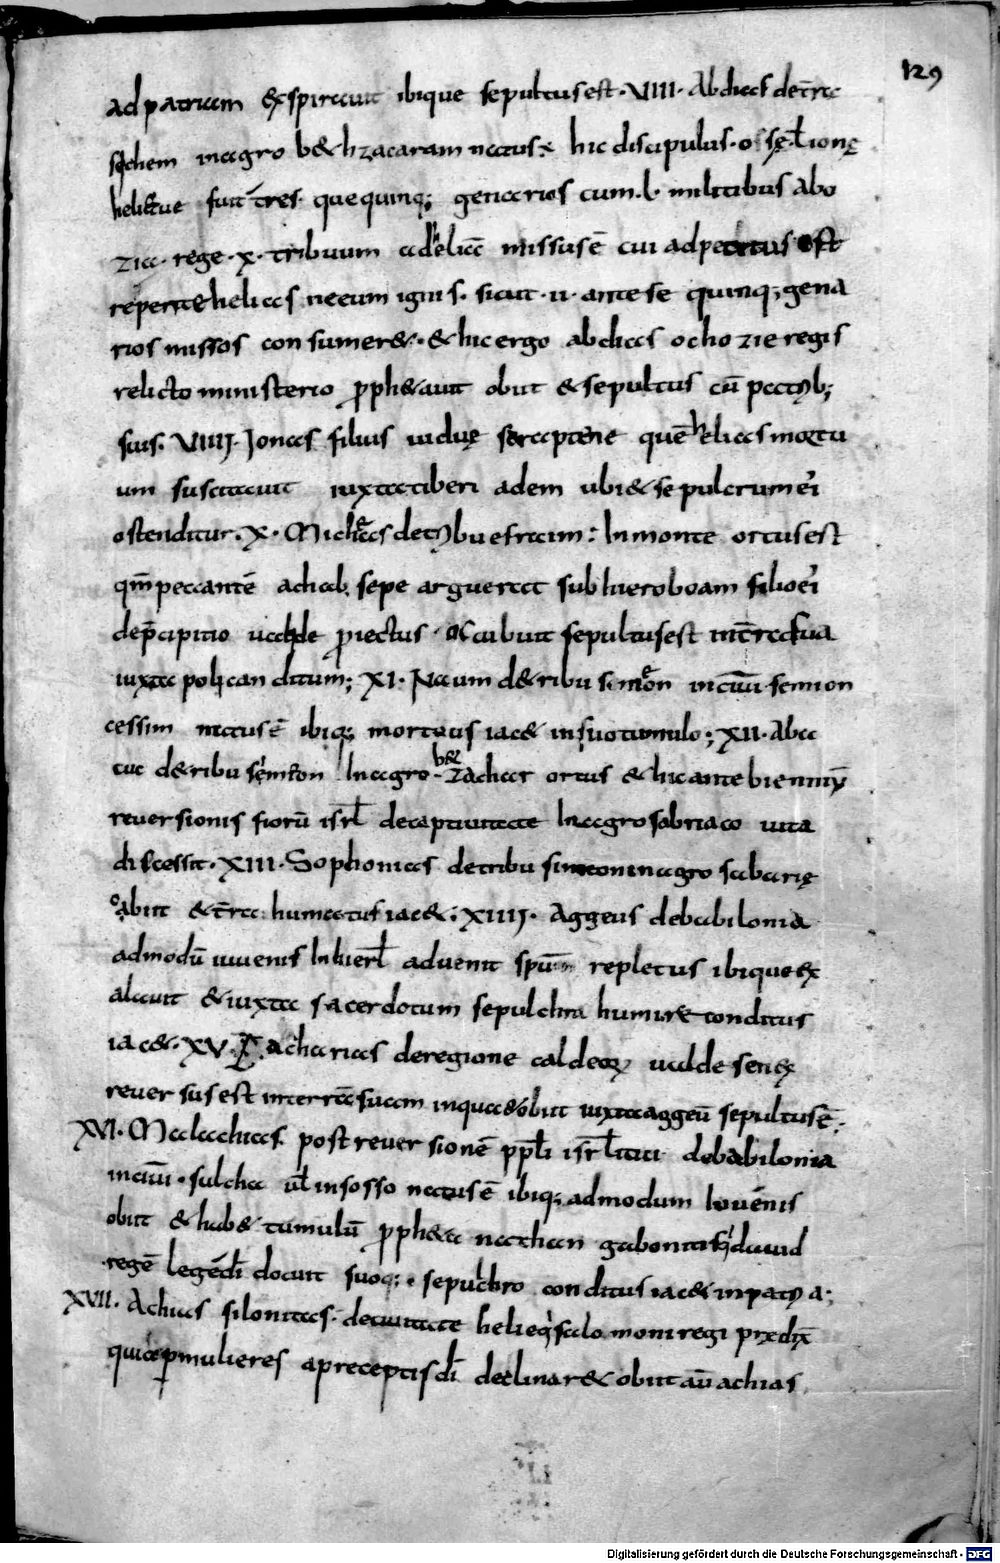 129
ad patriam exspiravit ibique sepultus est · VIIII · Abdias de t̄rra
sychem in agro beth zacaram natus · hic discipulus
heliae fuit t̄res · que quinq; genarios cum · l · militibus ab o
zia · rege · x · tribuum ad heliā missus ē cui ad est
heliae eum ignis · sicut · ii · ante se quinq; gena
rios missos consumer& · & hic ergo abdias ochozie regis
relicto ministerio p̄ph&auit obiit & sepultus cū patrib;
suis · VIIIJ · Jonas filius viduę sareptene quē helias mortu
um suscitavit iuxta tiberiadem ubi & sepulcrum ei
ostenditur · X · Micheas de tribu efraim : In monte ortus est
qm̄ peccantē achab sepe arguer& sub hieroboam filio ei
de p̄cipitio valde p̄iectus occubuit sepultus est in t̄rra sua
iuxta poliandium ; XI · Naum d& ribu simeon in
cessim natus ē ibiq; mortuus iac& in suo tumulo ; XII · Aba
cuc d& ribu semeon In agro b& zachar ortus & hic ante bienniū
reversionis fiorū isr̄l de captivitate In agro sabriaco vita
discessit · XIII · Sophonias de tribu simeon in agro sabarię
obiit & t̄rra humatus iac& ; XIIIJ · Aggeus de babilonia
admodū iuvenis In hierl̄ advenit spū repletus ibique ex
alavit & iuxta sacerdotum sepulchra humi conditus
iac& · XV · Zacharias de regione caldeorum valde senex
reversus est in terrā suam in qua & obiit iuxta aggeū sepultus ē ;
XVI · Malachias post reversionē ppl̄i isr̄litici de babilonia
in · sulcha ul̄ in sosso natus ē ibiq; admodum Iovenis
obiit & hab& tumulū p̄ph&a nathan gabonitis qui david
regē legē di docuit suoq; · sepulchro conditus iac& in patria ;
XVII · Achias silonites · de civitate heli eq salomoni regi predix
quia p mulieres a preceptis di declinar& obiit aū achias
Digitalisierung gefördert durch die Deutsche Forschungsgemeinschaft · DFG